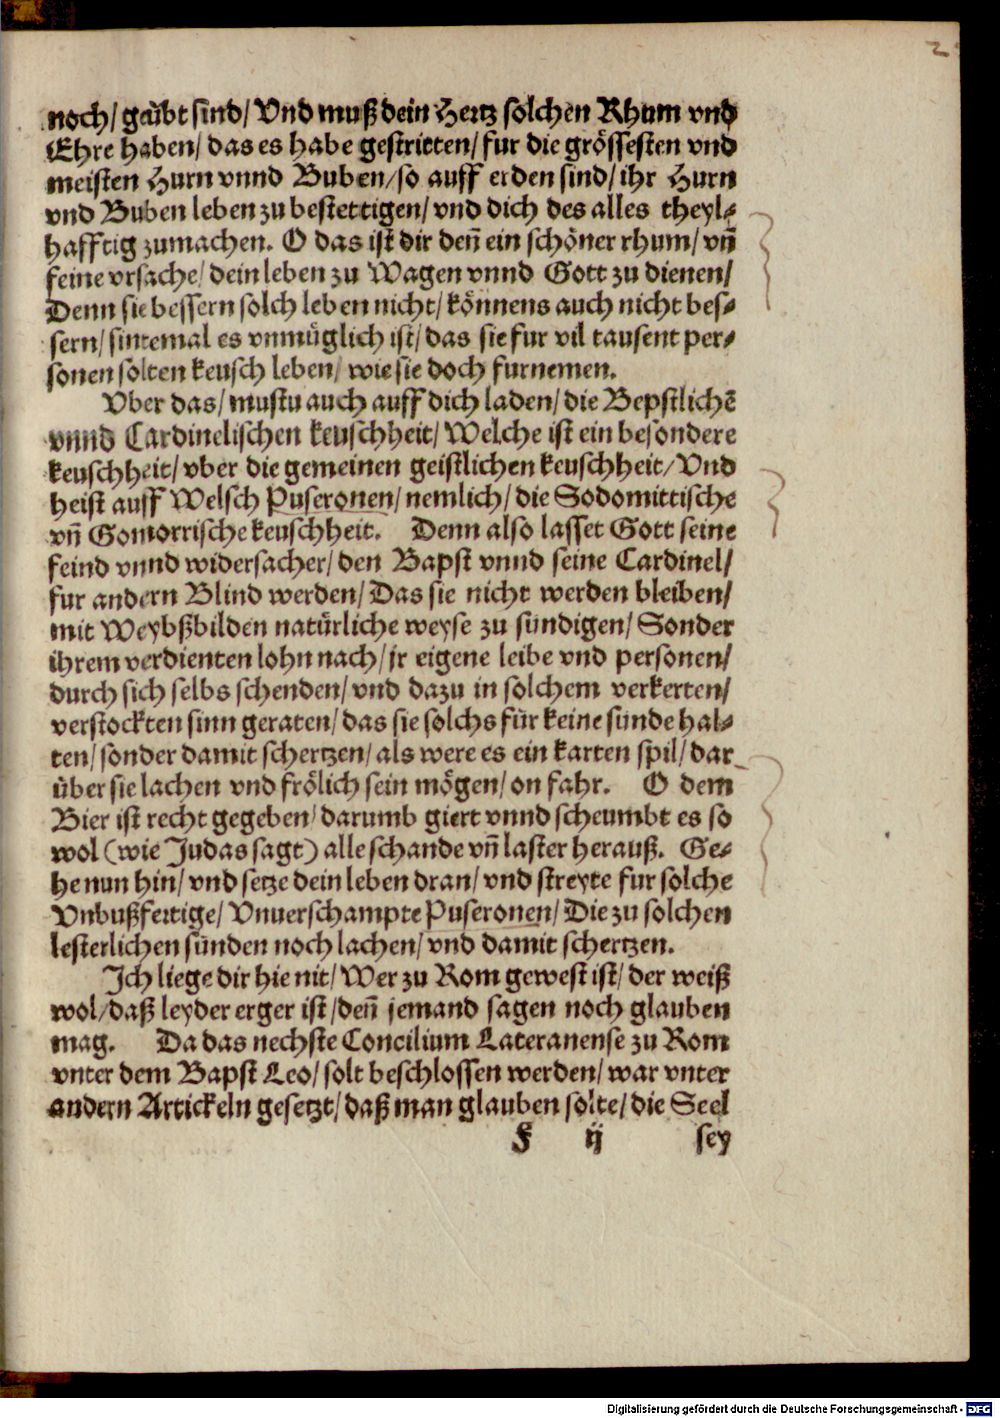 2
noch/ geübt sind/ Vnd muß dein Hertz solchen Rhum vnd
Ehre haben/ das es habe gestritten/ fur die grössesten vnd
meisten Hurn vnnd Buben/ so auff erden sind/ ihr Hurn
vnd Buben leben zu bestettigen/ vnd dich des alles theyl⸗
hafftig zumachen. O das ist dir deñ ein schöner rhum/ vñ
feine vrsache/ dein leben zu Wagen vnnd Gott zu dienen/
Denn sie bessern solch leben nicht/ könnens auch nicht bes⸗
sern/ sintemal es vnmüglich ist/ das sie fur vil tausent per⸗
sonen solten keusch leben/ wie sie doch furnemen.
Vber das/ mustu auch auff dich laden/ die Bepstlichē
vnnd Cardinelischen keuschheit/ Welche ist ein besondere
keuschheit/ vber die gemeinen geistlichen keuschheit/ Vnd
heist auff Welsch Puseronen/ nemlich/ die Sodomittische
vñ Gomorrische keuschheit. Denn also lasset Gott seine
feind vnnd widersacher/ den Bapst vnnd seine Cardinel/
fur andern Blind werden/ Das sie nicht werden bleiben/
mit Weybßbilden natürliche weyse zu sündigen/ Sonder
ihrem verdienten lohn nach/ jr eigene leibe vnd personen/
durch sich selbs schenden/ vnd dazu in solchem verkerten/
verstockten sinn geraten/ das sie solchs für keine sünde hal⸗
ten/ sonder damit schertzen/ als were es ein karten spil/ dar
über sie lachen vnd frölich sein mögen/ on fahr. O dem
Bier ist recht gegeben/ darumb giert vnnd scheumbt es so
wol (wie Judas sagt) alle schande vñ laster herauß. Ge⸗
he nun hin/ vnd setze dein leben dran/ vnd streyte fur solche
Vnbußfertige/ Vnuerschampte Puseronen/ Die zu solchen
lesterlichen sünden noch lachen/ vnd damit schertzen.
Ich liege dir hie nit/ Wer zu Rom gewest ist/ der weiß
wol/ daß leyder erger ist/ deñ jemand sagen noch glauben
mag. Da das nechste Concilium Lateranense zu Rom
vnter dem Bapst Leo/ solt beschlossen werden/ war vnter
andern Artickeln gesetzt/ daß man glauben solte/ die Seel
F ij sey
Digitalisierung gefördert durch die Deutsche Forschungsgemeinschaft - DFG